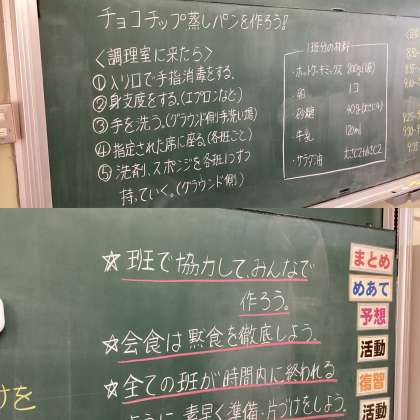 チョコチップ蒸しパンを作ろう!
<調理室に来たら>
①入り口で手指消毒をする。
②身支度をする。(エプロンなど)
③手を洗う。(グラウンド側手洗い場)
④指定された席に座る。(各班ごと)
⑤洗剤、スポンジを各班1つずつ
持っていく。(グラウンド側)
1班分の材料
・ホットケーキミックス 200g(1袋)
・卵 1コ
・砂糖 40g(大さじ4)
・牛乳 120ml
・サラダ油
☆班で協力して、みんなで
作ろう。
☆会食は黙食を徹底しよう。
☆全ての班が時間内に終われる
ように、素早く準備・片づけをしよう。
まとめ
めあて
予想
活動
復習
活動